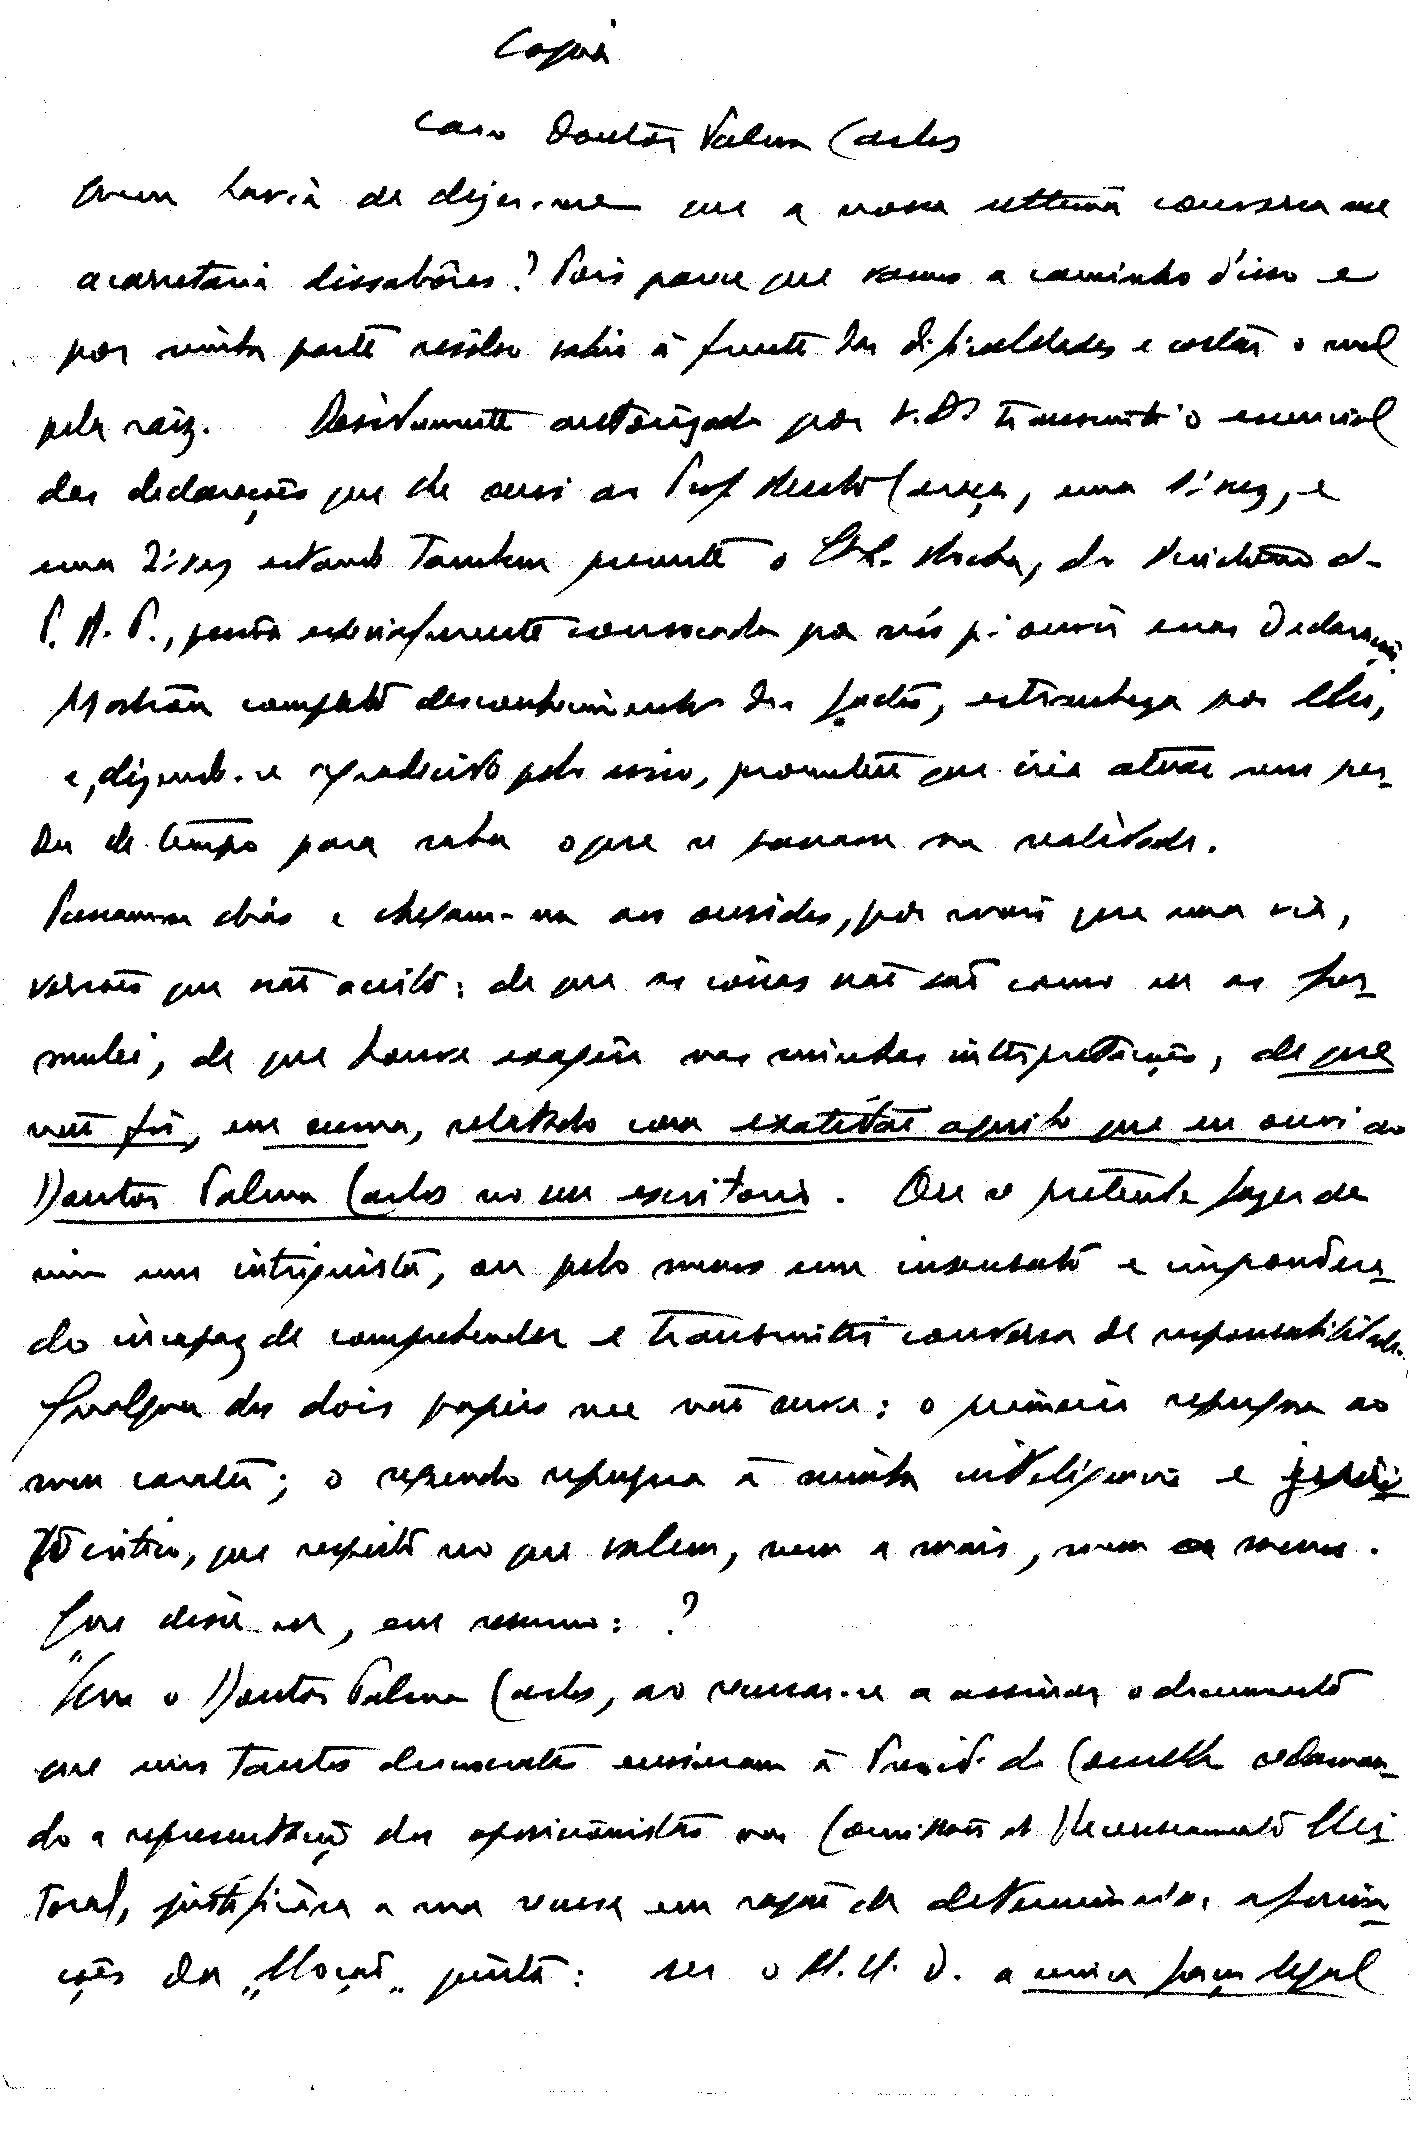 Copia
Caso Doutor Palma Carlos
Quem havia de dizer-me que a nossa ultima conversa me
acarretaria dissabôres? Pois parece que vamos a caminho d'isso e
por minha parte resolvo sahir à frente das dificuldades e cortar o mal
pela raiz. Devidamente autorizado por V. transmiti o essencial
das declarações que lhe ouvi ao Prof Bento Caraça, uma 1ª vez, e
uma 2ª vez estando tambem presente o Rocha, do Directorio d.
P. R. P., pessoa expressamente convocada por nós pª ouvir essas Declarações
Mostrou completo desconhecimento dos factos, estranheza por eles,
e, dizendo-se agradecido pelo aviso, prometeu que iria atuar sem per-
da de tempo para saber o que se passava na realidade.
Passam-se dias e chegam-me aos ouvidos, por mais que uma via,
versões que não aceito: de que as coisas não são como eu as for-
mulei, de que houve exagêro nas minhas interpretações, de que
não foi, em suma, relatado com exatidão aquilo que eu ouvi ao
Doutor Palma Carlos no seu escritorio. Ou se pretende fazer de
mim um intriguista, ou pelo menos um insensato e impondera-
do incapaz de comprehender e transmitir conversa de responsabilidade.
Qualquer dos dois papeis me não serve: o primeiro repugna ao
meu caracter; o segundo repugna à minha inteligencia e
critico, que respeito no que valem, nem a mais, nem a menos.
Que disse eu, em resumo: ?
"Que o Doutor Palma Carlos, ao recusar-se a assinar o documento
que uns tantos democratas enviaram à Presid. do Conselho reclaman-
do a representação dos oposicionistas nas Comissões de Recenseamento Elei-
toral, justificára a sua recusa em razão de determinadas afirma-
ções da "Moção" junta: ser o M. U. D. a unica força legal